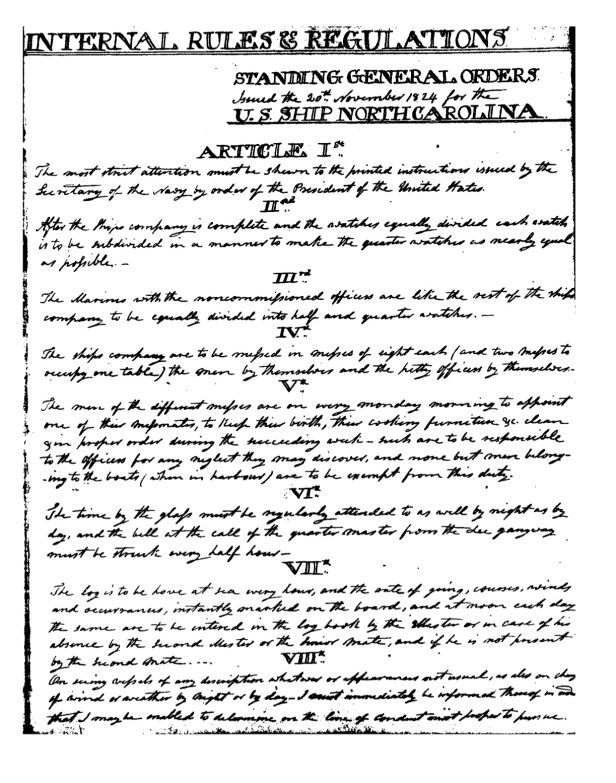 INTERNAL RULES & REGULATIONS
STANDING GENERAL ORDERS
Issued the 20th November 1824 for the
U.S. SHIP NORTH CAROLINA
ARTICLE Ist
The most strict attention must be shewn to the printed instructions issued by the
Secretary of the Navy by order of the President of the United States.
IInd
After the ships company is complete and the watches equally divided each watch
is to be subdivided in a manner to make the quarter watches as nearly equal
as possible. -
IIIrd
The Marines with the noncommissioned officers are like the rest of the ships
company to be equally divided into half and quarter watches. -
IVth
The ships company are to be messed in messes of eight each (and two messes to
occupy one table) the men by themselves and the petty officers by themselves -
Vth
The men of the different messes are on every monday morning to appoint
one of their messmates, to keep their birth, their cooking furniture &c. clean
& in proper order during the succeeding week - such are to be responsible
to the officers for any neglect they may discover, and none but men belong-
-ing to the boats (when in harbour) are to be exempt from this duty.
VIth
The time by the glass must be regularly attended to as well by night as by
day, and the bell at the call of the quarter master from the lee gangway
must be struck every half hour -
VIIth
The log is to be hove at sea every hour, and the rate of going, courses, winds
and occurrances, instantly marked on the board, and at noon each day
the same are to be entered in the log book by the Master or in case of his
absence by the second Master or the Senior Mate, and if he is not present
by the second Mate....
VIIIth
On seeing vessels of any discription whatever or appearances not usual, as also on
of wind or weather by Night or by day - I must immediately be informed thereof in
that I may be enabled to determine on the line of conduct most proper to pursue.